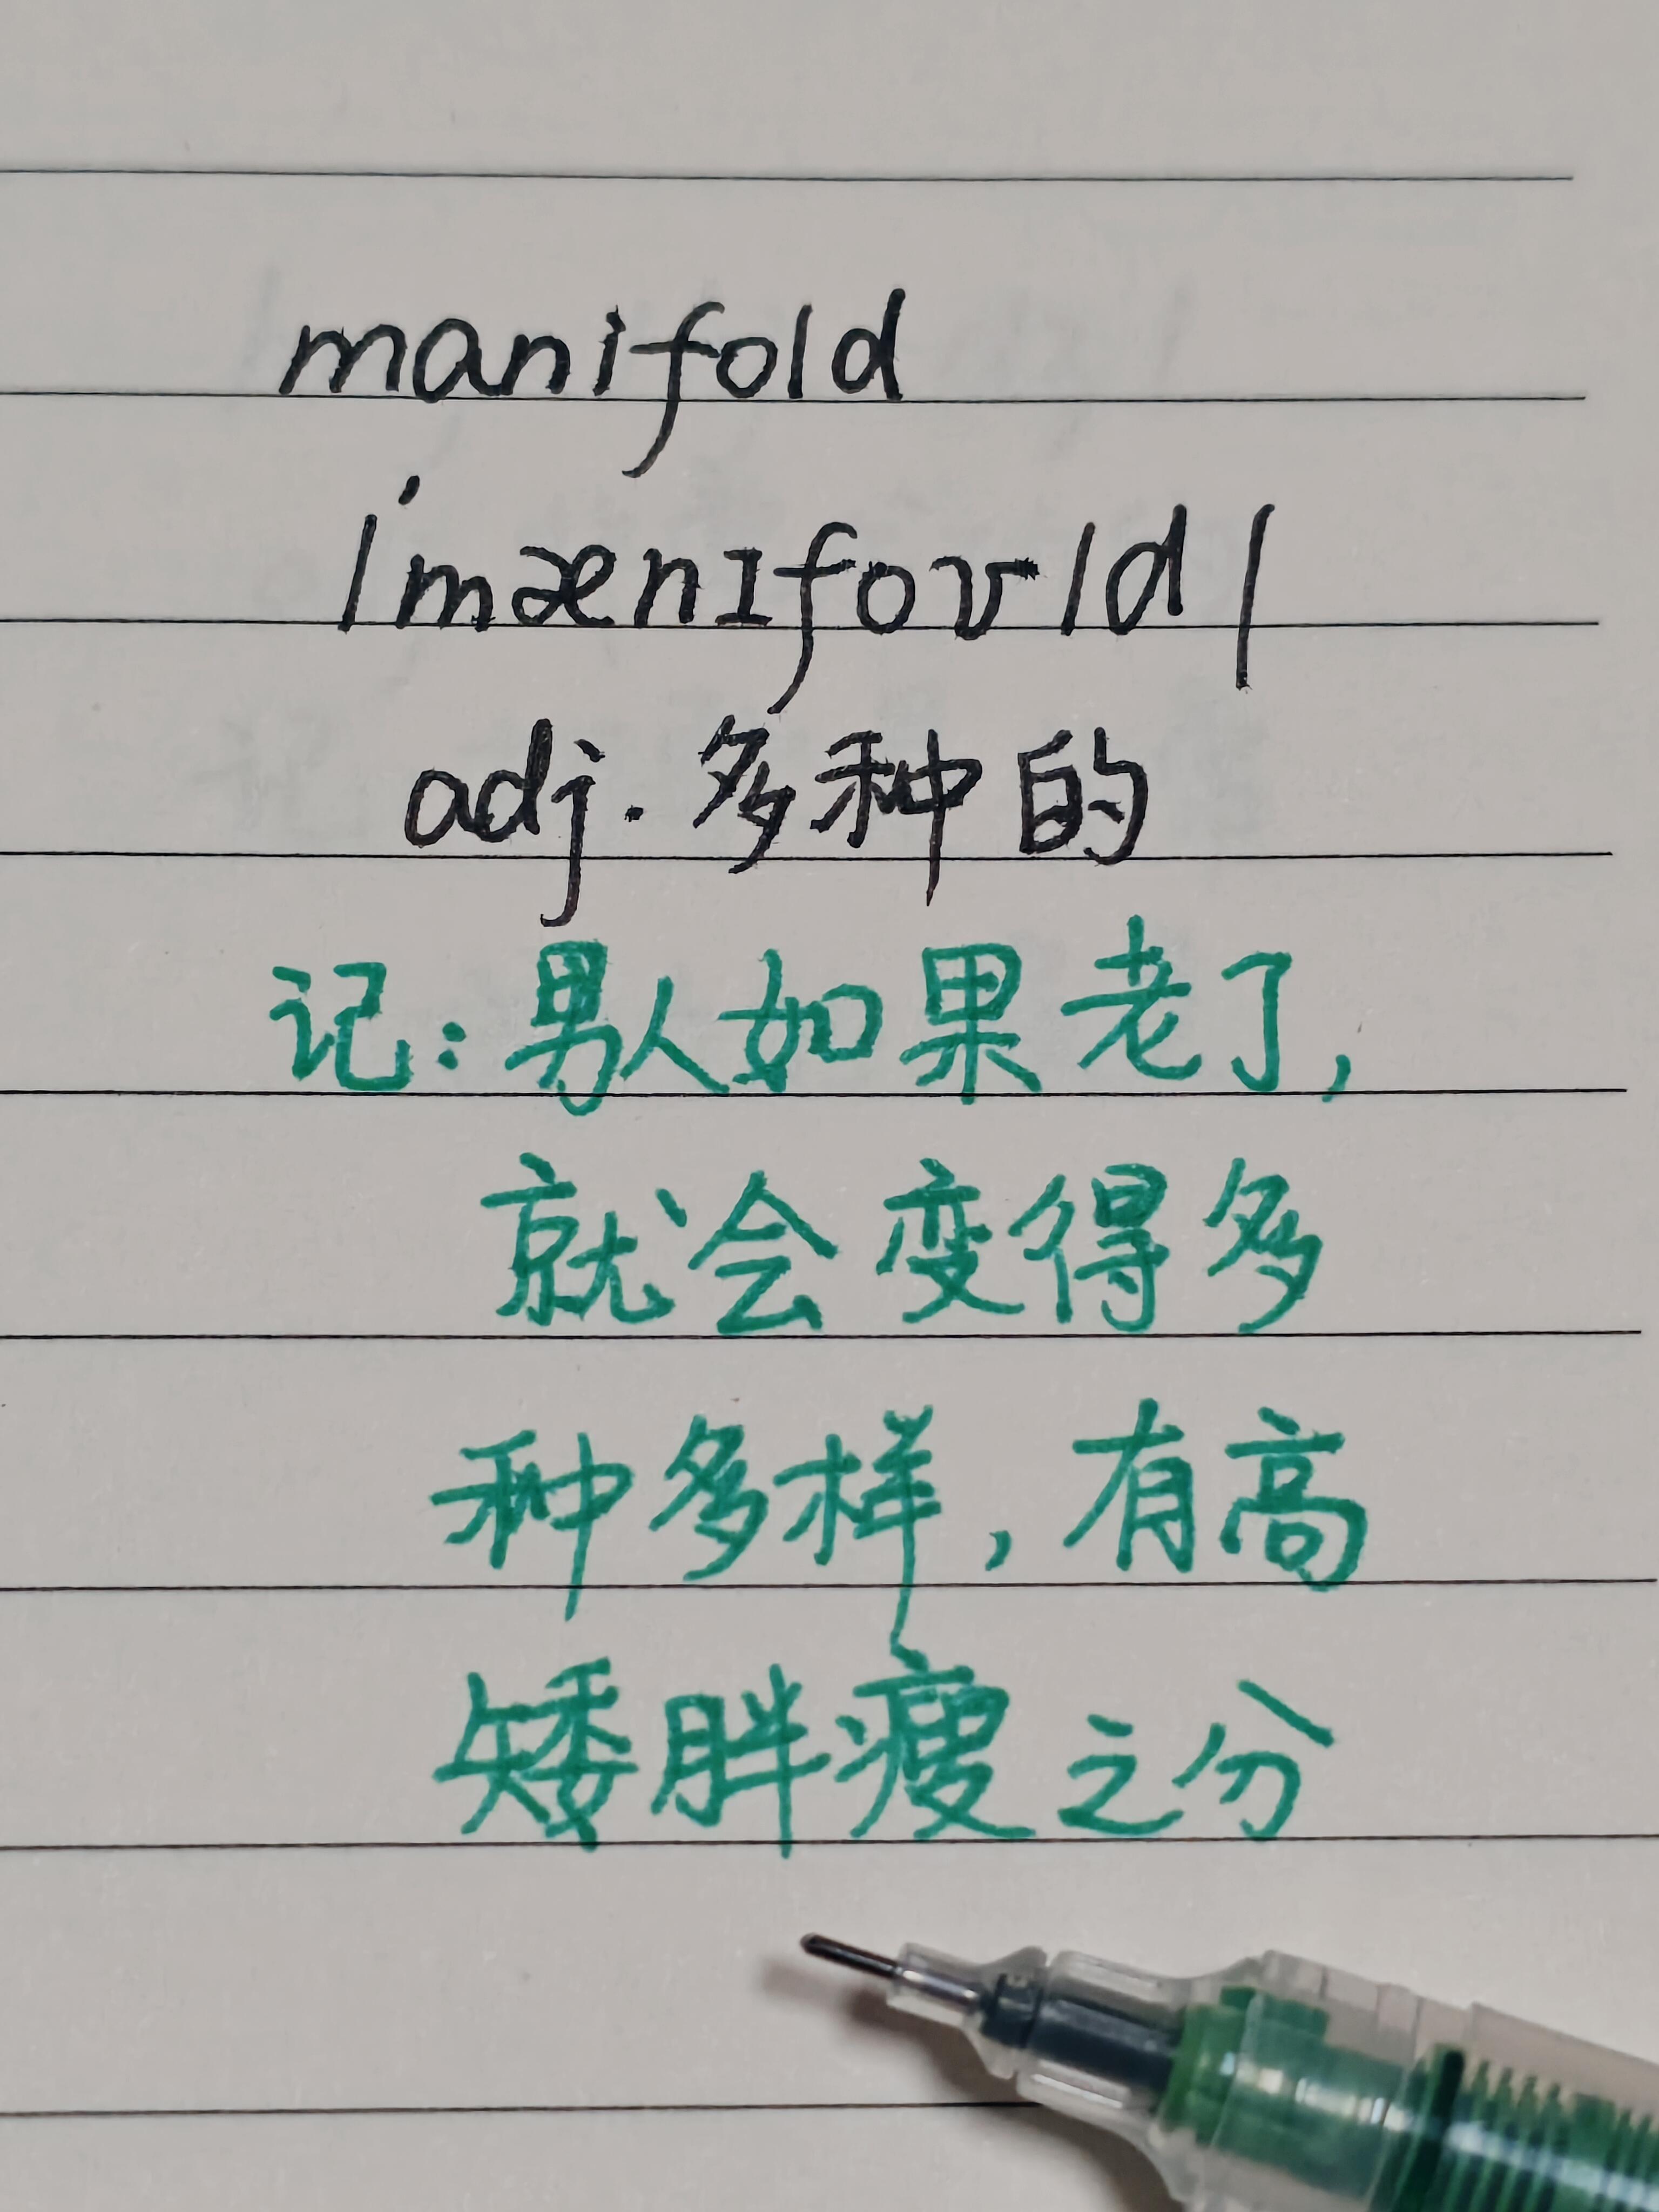 manifold
/ˈmænɪfoʊld/
adj. 多种的
记：男人如果老了，
就会变得多
种多样，有高
矮胖瘦之分